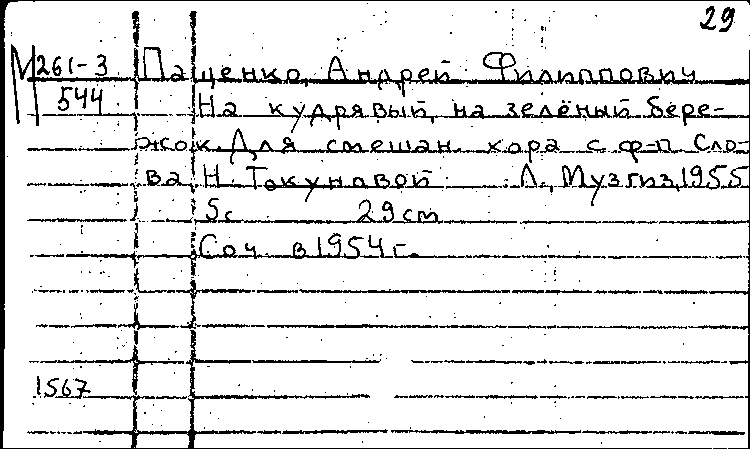 29
М 261-3 Пащенко, Андрей Филиппович
544 На кудрявый, на зелёный бере-
жок. Для смешан. хора с ф-п. Сло-
ва Н. Токуновой Л., Музгиз, 1955
5с 29 см
Соч. в 1954 г.
1567